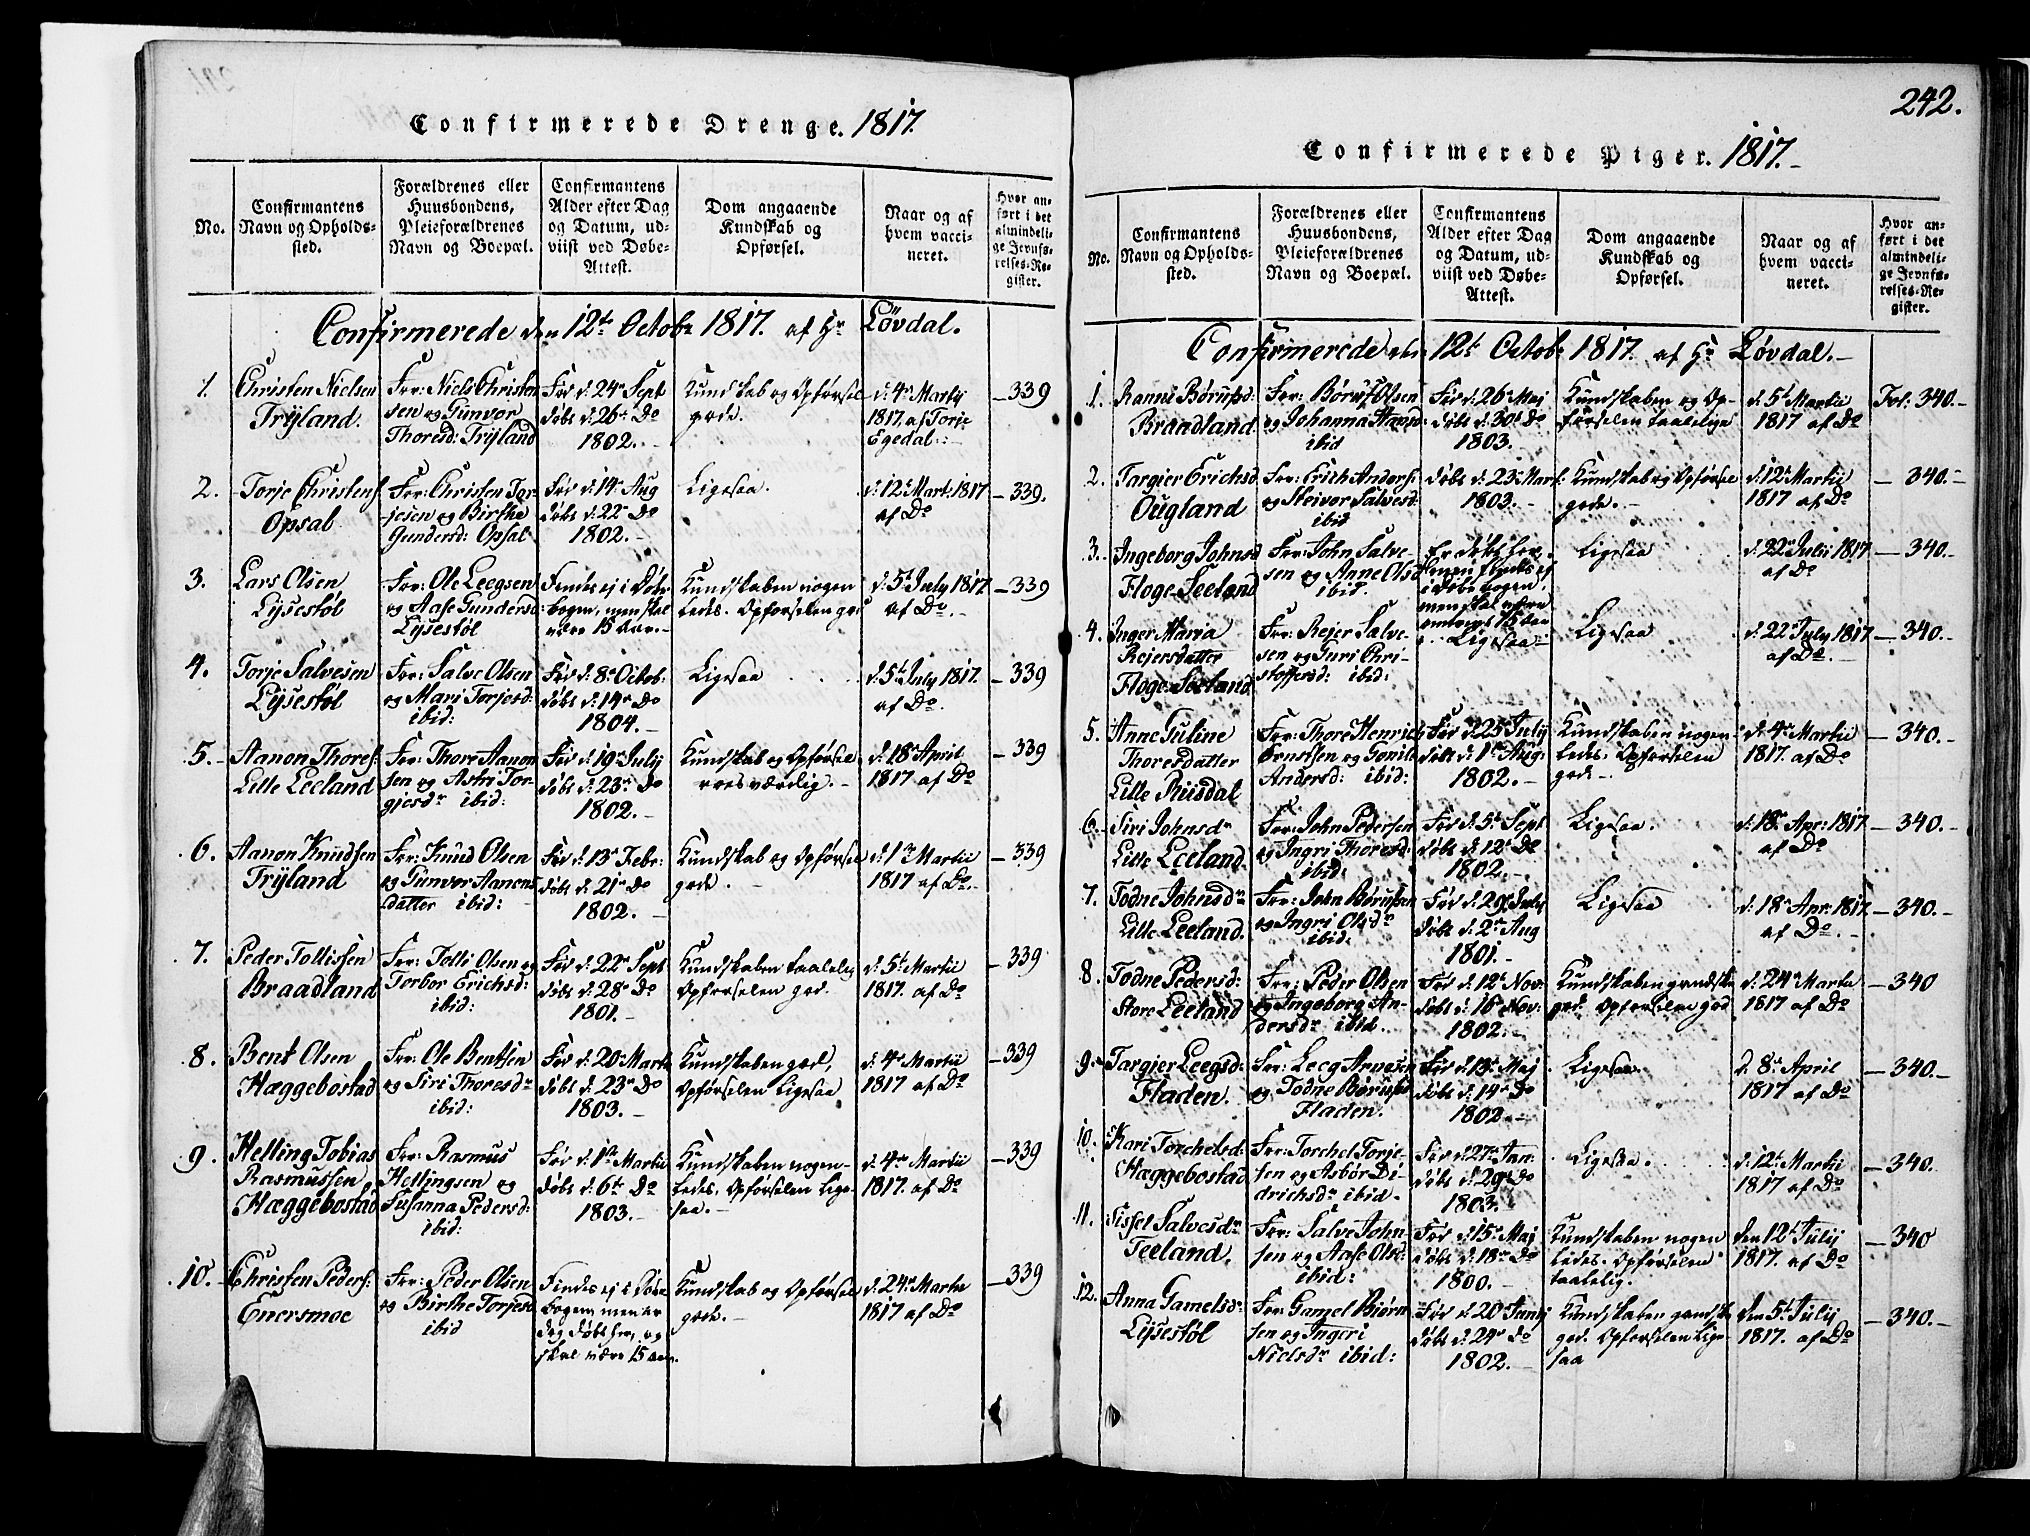 Confirmerede Drenge. 1817.
No.
Confirmantens
Navn og Opholds-
sted.
Forældrenes eller
Huusbondens,
Pleieforældrenes
Navn og Boepæl.
Confirmantens
Alder efter Dag
og Datum, ud-
viist ved Døbe-
Attest.
Dom angaaende
Kundskab og
Opførsel.
Naar og af
hvem vacci-
neret.
Hvor an-
ført i det
almindeli-
ge Jevnfø-
relses-Re-
gister.
Confirmerede den 12t Octobr 1817. af Hr Løvdal.
1.
Christen Nielsen
Trÿland.
For: Niels Christen
sen og Gunvor
Thoresd: Trÿland
Fød d. 24r Sept
døbt d: 26r Do
1802.
Kundskab og Opførsel
gode.
d. 4r Martÿ
1817. af Torje
Egedal.
339
2.
Torje Christens:
Opsal
For: Christen Tor-
jesen og Birthe
Gundersd: Opsal
Fød d: 14r Aug
døbt d: 22r Do
1802.
Ligesaa.
d: 12t Mart: 1817
af Do
339.
3.
Lars Olsen
Lÿsestøl
For: Ole Leegsen
og Aase Gundersd:
Lÿsestøl
Findes ej i Døbe-
bogen, men skal
være 15 Aar.
Kundskaben nogen
ledes. Opførselen god
d: 5t July 1817
af Do.
339
4.
Torje Salvesen
Lÿsestøl
For: Salve Olsen
og Mari Torjesd:
ibid:
Fød d. 8r Octob:
døbt d: 14r Do
1804.
Ligesaa
d. 5t July 1817.
af Do.
339
5.
Aanon Thores:
Lille Leeland
For: Thore Aanon
sen og Astri Tor-
gjesdr ibid:
Fød d: 19r Julÿ
døbt d: 23r Do
1802.
Kundskab og Opførsel
roesværdig.
d. 18r April
1817. af Do
339
6.
Aanon Knudsen
Trÿland
For: Knud Olsen
og Gunvor Aanons
datter ibid:
Fød d: 13r Febr:
døbt d: 21r Do
1802.
Kundskab og Opførsel
gode.
d: 1r Martii
1817 af Do.
339
7.
Peder Tollissen
Braadland
For: Tolli Olsen og
Torbor Erichsd:
ibid:
Fød d: 22r Sept
døbt d: 28r Do
1801.
Kundskaben taalelig
Opførselen god.
d: 5t Martii
1817. af Do
339
8.
Bent Olsen
Hæggebostad
For: Ole Bentsen
og Siri Thoresdr
ibid:
Fød d: 20r Martii
døbt d: 23r Do
1803.
Kundskaben god,
Opførselen Ligesaa
d: 4r Martii
1817 af Do
339
9.
Helling Tobias
Rasmussen
Hæggebostad
For: Rasmus
Hellingsen og
Susanna Pedersd:
ibid:
Fød d: 1te Martii
døbt d: 6te Do
1803.
Kundskaben nogen-
ledes. Opførselen Lige-
saa.
d: 4r Martii
1817. af Do
339
10.
Christen Peders:
Enersmoe
For: Peder Olsen
og Birthe Torjesd
ibid
Findes ej i Døbe
bogen men er
dog døbt her, og
skal være 15 Aar.
Kundskab og Opførsel
gode.
d: 24r Martii
1817 af Do
339
242.
Confirmerede Piger. 1817.
No.
Confirmantens
Navn og Opholds-
sted.
Forældrenes eller
Huusbondens,
Pleieforældrenes
Navn og Boepæl.
Confirmantens
Alder efter Dag
og Datum, ud-
viist ved Døbe-
Attest.
Dom angaaende
Kundskab og
Opførsel.
Naar og af
hvem vacci-
neret.
Hvor an-
ført i det
almindeli-
ge Jevnfø-
relses-Re-
gister.
Confirmerede den 12t Octob: 1817. af Hr Løvdal.
1.
Ranni Børufsd:
Braadland
For: Børuf Olsen
og Johanna
ibid
Fød d: 26r Maj
døbt d: 30t Do
1803.
Kundskaben og Op-
førselen taalelige
d. 5t Martii
1817 af Do
Fol: 340.
2.
Targier Erichsd
Ougland
For: Erich Anders:
og Steivor Salvesd:
ibid
døbt d: 23r Mart:
1803.
Kundskab og Opførsel
gode.
d: 12t Martii
1817 af Do
340.
3.
Ingeborg Johnsd
Floge Seeland
For: John Salve-
sen og Anne Olsd
ibid.
Er døbt her,
men findes ej
i Døbebogen,
men skal være
omtrent 15 Aar
Ligesaa
d: 22r Julii 1817
af Do
340.
4.
Inger Maria
Rejersdatter
Floge Seeland
For: Rejer Salve-
sen og Guri Chri-
stoffersd: ibid:
Ligesaa
Ligesaa
d: 22r July 1817
af Do.
340.
5.
Anne Guline
Thoresdatter
Lille Riisdal
For: Thore Henrich
Ernstsen og Gunild
Andersd: ibid:
Fød d: 22r Julÿ
døbt d: 1te Aug:
1802.
Kundskaben nogen
ledes. Opførselen
gode.
d: 4r Martii
1817. af Do
340.
6.
Siri Johnsdr
Lille Leeland
For: John Pedersen
og Ingri Thoresd:
ibid:
Fød d. 5t Sept
døbt d: 12r Do
1802.
Ligesaa.
d: 18r Apr: 1817
af Do
340.
7.
Todne Johnsdr
Lille Leeland.
For: John Børufsen
og Ingri Olsdr
ibid:
Fød d: 29r Julÿ
døbt d: 2r Aug
1801.
Ligesaa
d: 18r Apr: 1817.
af Do.
340.
8.
Todne Pedersd:
Store Leeland
For: Peder Olsen
og Ingeborg An-
dersdr ibid.
Fød d: 12t Nov:
døbt d: 16r Nov:
1802.
Kundskaben gandske
god. Opførselen god
d: 24r Martii
1817 af Do
340
9.
Targier Leegsd:
Fladen.
For: Leeg Arnesen
og Todne Børufsd
Fladen.
Fød d: 13r Maj
døbt d: 14r Do
1802.
Ligesaa
d. 8r April
1817 af Do
340.
10.
Kari Torchelsd:
Hæggebostad
For: Torchel Torje-
sen og Asbor Di-
drichsdr ibid.
Fød d: 27r Jan:
døbt d: 29r Do
1803.
Ligesaa.
d: 12t Martii
1817 af Do
340.
11.
Sissel Salvesdr
Teeland.
For: Salve John-
sen og Aase Olsd:
ibid:
Fød d: 15r Maj
døbt d: 18r Do
1800.
Kundskaben nogen
ledes. Opførselen
taalelig.
den 12t Julÿ
1817. af Do
340
12.
Anna Gamelsd:
Lÿsestøl
For: Gamel Biørn
sen og Ingeri
Nielsdr ibid:
Fød d: 20
døbt d: 24r Do
1802.
Kundskaben gandske
god. Opførselen Lige-
saa
den 5t Julÿ
1817. af Do
340.